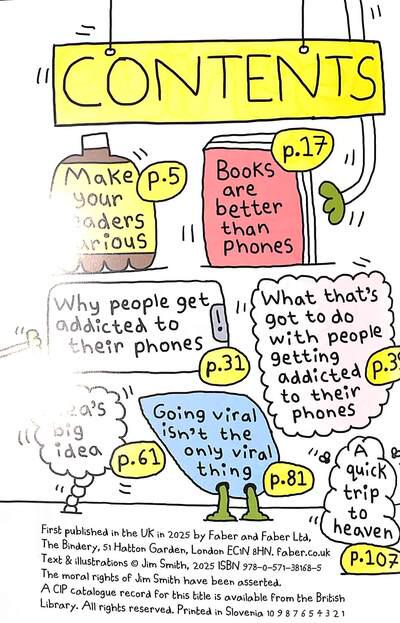 CONTENTS
Make
your
rious
p.5
Books
are
better
than
phones
p.17
Why people get
addicted to
their phones
p.31
What that's
got to do
with people
getting
addicted
to their
phones
big
idea
p.61
Going viral
isn't the
only viral
thing
p.81
A
quick
trip
to
heaven
p.107
First published in the UK in 2025 by Faber and Faber Ltd,
The Bindery, 51 Hatton Garden, London EC1N 8HN. faber.co.uk
Text & illustrations © Jim Smith, 2025 ISBN 978-0-571-38168-5
The moral rights of Jim Smith have been asserted.
A CIP catalogue record for this title is available from the British
Library. All rights reserved. Printed in Slovenia 10 9 8 7 6 5 4 3 2 1